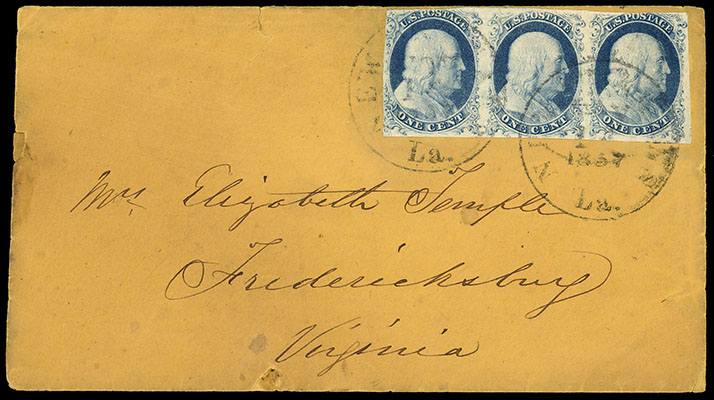 U.S. POSTAGE U.S. POSTAGE U.S. POSTAGE
ONE CENT ONE CENT ONE CENT
La.
1857
La.
Mrs. Elizabeth Temple
Fredericksburg
Virginia